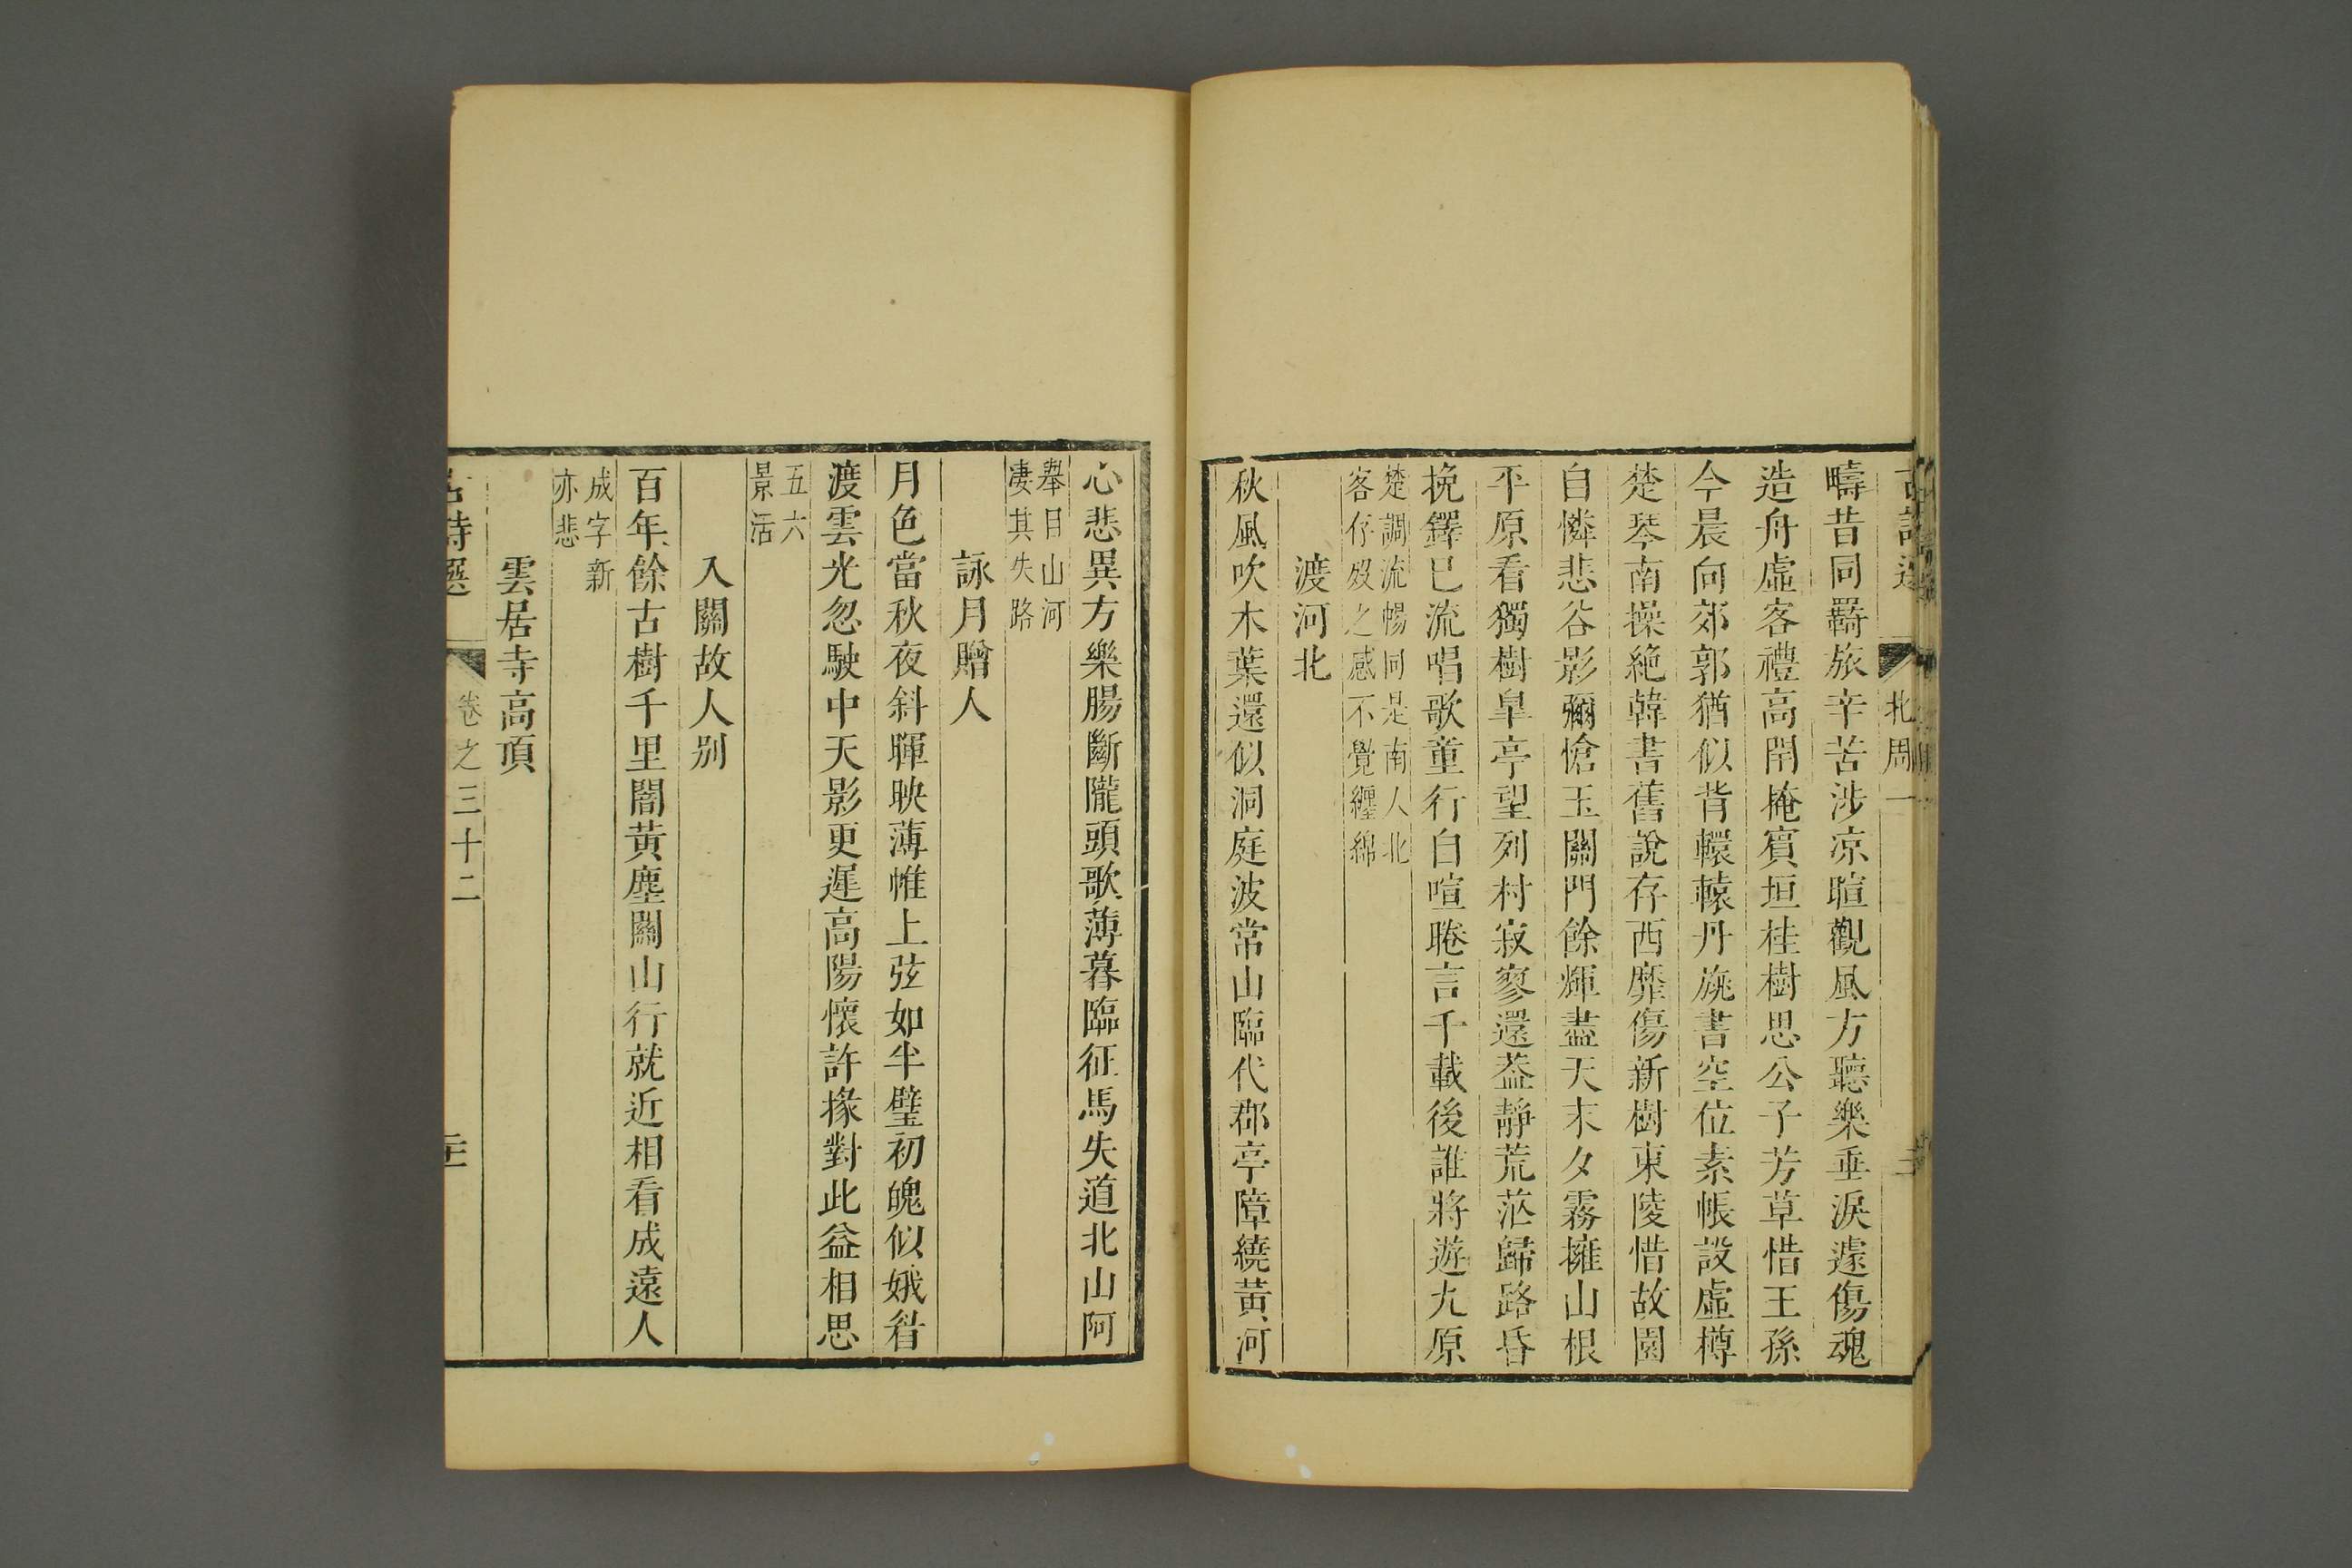 北周一
疇昔同羇旅辛苦涉凉暄觀風方聽樂垂淚遽傷魂
造舟虛客禮高閈掩賓垣桂樹思公子芳草惜王孫
今晨向郊郭猶似背轘轅丹旐書空位素帳設虛樽
楚琴南操絶韓書舊說存西靡傷新樹東陵惜故園
自憐悲谷影彌愴玉關門餘輝盡天末夕霧擁山根
平原看獨樹臯亭望列村寂寥還葢靜荒茫歸路昏
挽鐸已流唱歌童行自喧眷言千載後誰將遊九原
楚調流暢同是南人北
客存殁之感不覺纏綿
渡河北
秋風吹木葉還似洞庭波常山臨代郡亭障繞黃河
心悲異方樂腸斷隴頭歌薄暮臨征馬失道北山阿
舉目山河
凄其失路
詠月贈人
月色當秋夜斜暉映薄帷上弦如半璧初魄似娥眉
渡雲光忽駛中天影更遲高陽懷許掾對此益相思
五六
景活
入關故人别
百年餘古樹千里闇黃塵關山行就近相看成遠人
成字新
亦悲
雲居寺高頂
古詩選
卷之三十二